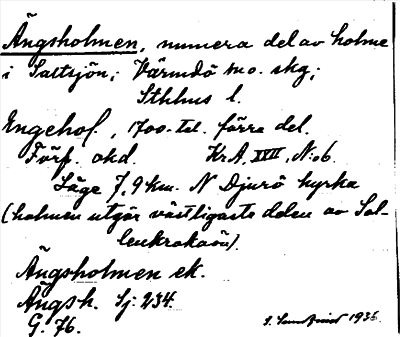 Ängsholmen, numera del av holme
i Saltsjön; Värmdö tno. skg;
Sthlms l.
Engehof, 1700-tal. förra del.
Förf. okd. Kr.A, XVII, N:o 6.
Läge 7,9 km. N Djurö kyrka
(holmen utgör västligaste delen av Sol-
lenkrokaön).
Ängsholmen ek.
Ängsh. Sj: 234.
G. 76.
1936.